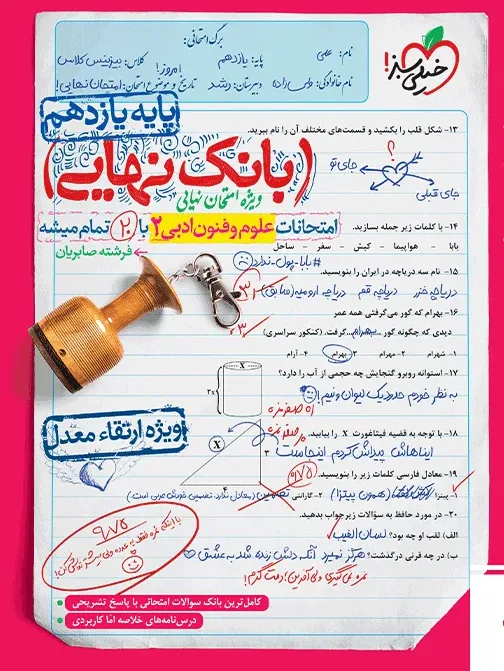 خیلی سبز!
برگ امتحانی:
نام: علی
پایه: یازدهم
کلاس: بیزینس کلاس
نام خانوادگی: ولی‌زاده
دبیرستان: رشد
تاریخ و موضوع امتحان: امتحان نهایی!
امروز!
پایه یازدهم
بانک نهایی
ویژه امتحان نهایی
امتحانات علوم و فنون ادبی ۲ با ۲۰ تمام میشه
فرشته صابریان
۱۳- شکل قلب را بکشید و قسمت‌های مختلف آن را نام ببرید.
؟
جای تو
جای قبلی
۱۴- با کلمات زیر جمله بسازید.
بابا - هواپیما - کیش - سفر - ساحل
#بابا-پول-ندارد
۱۵- نام سه دریاچه در ایران را بنویسید.
دریاچه خزر دریاچه قم دریاچه ارومیه (سابق)
۱۶- بهرام که گور می‌گرفتی همه عمر
دیدی که چگونه گور ...بهرام... گرفت. (کنکور سراسری)
۱- شهرام ۲- مهرام ۳- بهرام ۴- آرام
۱۷- استوانه روبرو گنجایش چه حجمی از آب را دارد؟
X
۲x
به نظر خودم حدود یک لیوان و نیم!
۱۸- با توجه به قضیه فیثاغورث X را بیابید.
X
۳
۴
ایناهاش پیداش کردم اینجاست
ویژه ارتقاء معدل
۱۹- معادل فارسی کلمات زیر را بنویسید.
۱- پیتزا (همون پیتزا) ۲- گارانتی تضمین
۲۰- در مورد حافظ به سؤالات زیر جواب بدهید.
الف) لقب او چه بود؟ لسان الغیب
ب) در چه قرنی درگذشت؟ هرگز نمیرد آنکه دلش زنده شد به عشق
۹/۷۵
کامل‌ترین بانک سوالات امتحانی با پاسخ تشریحی
درس‌نامه‌های خلاصه اما کاربردی